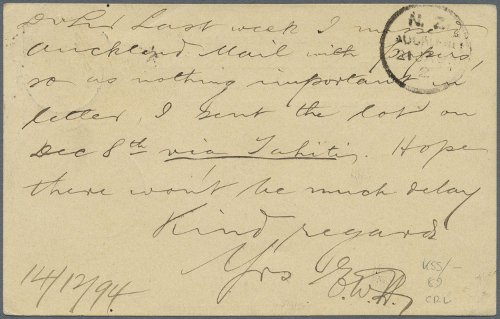 Last week I missed
Auckland Mail with papers,
so as nothing important in
letter, I sent the lot on
Dec 8th via Tahiti. Hope
there won't be much delay
Kind regards
Yrs E.W.H.
14/12/94
N.Z.
2
K55/-
CRL